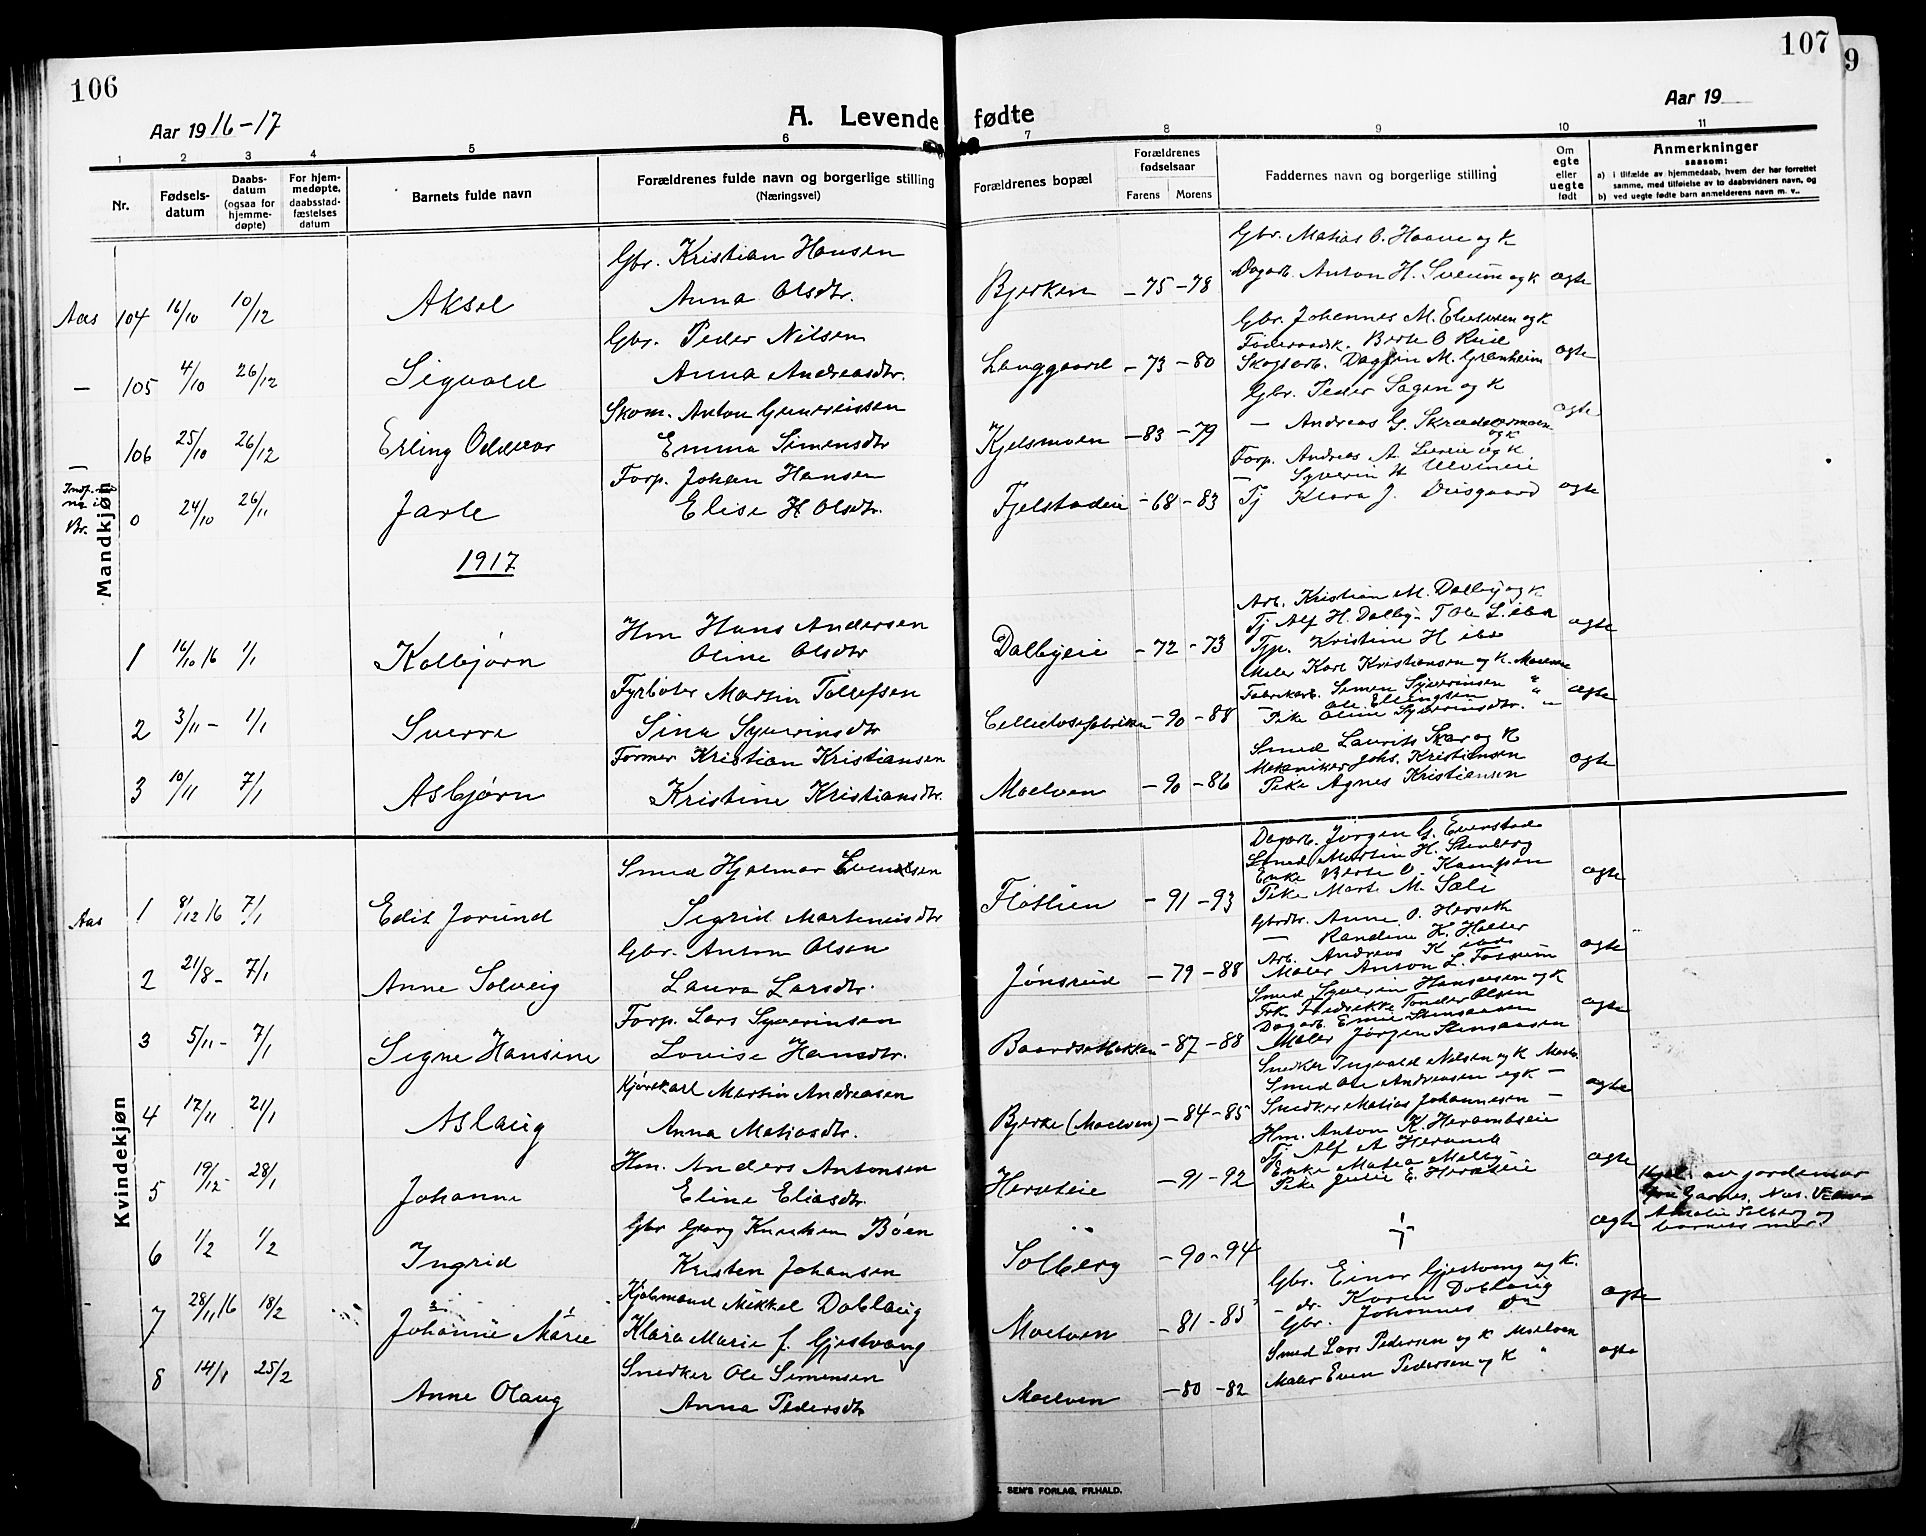 106
107
9
Aar 1916-17
A. Levende fødte
Aar 19
1 2 3 4 5 6 7 8 9 10 11
Nr.
Fødsels-
datum
Daabs-
datum
(ogsaa for
hjemme-
døpte)
For hjem-
medøpte,
daabsstad-
fæstelses
datum
Barnets fulde navn
Forældrenes fulde navn og borgerlige stilling
(Næringsvei)
Forældrenes bopæl
Forældrenes
fødselsaar
Farens Morens
Faddernes navn og borgerlige stilling
Om
egte
eller
uegte
født
Anmerkninger
saasom:
a) i tilfælde av hjemmedaab, hvem der har forrettet
samme, med tilføielse av to daabsvidners navn, og
b) ved uegte fødte barn anmelderens navn m. v..
Mandkjøn
Gbr. Kristian Hansen
Gbr. Matias O. Haave og K
Aas 104 16/10 10/12 Aksel Anna Olsdtr. Bjerken -75 -78 Dagarb. Anton H. Sveum og K ægte
Gbr. Peder Nilsen
Gbr. Johannes M. Eliassen og K
Føderaadsk. Berte O Ruse
- 105 4/10 26/12 Sigvald Anna Andreasdtr. Langgaard -73 -80 Skogsarb. Dagfin M. Grønheim ægte
Gbr. Peder Sagen og K
Skom. Anton Gunereissen
- Andreas G. Skrædermoen og K
- 106 25/10 26/12 Erling Oddvar Emma Simensdtr Kjelsmoen -83 -79 ægte
Forp. Andreas A. Lereie og K.
Forp. Johan Hansen
- Syverin H Ulvineie
Br. 0 24/10 26/11 Jarle Elise H Olsdtr. Fjelstadeie -68 -83 Tj Klara J. Disgaard ægte
1917
Arb. Kristian M. Dalby og K
Hm Hans Andersen
Tj Alf H. Dalby - T Ole L. ibn
1 16/10 16 1/1 Kolbjørn Oline Olsdtr Dalbyeie -72 -73 Tjp. Kristine H ibn ægte
Maler Karl Kristiansen og K. Moelven
Fyrbøter Martin Tollefsen
Fabrikarb. Simen Syverinsen "
Ole Ellingsen "
2 3/11 - 1/1 Sverre Sina Syverinsdtr Cellulosefabriken -90 -88 - Pike Oline Syverinsdtr. " ægte
Smed Laurits Skar og K
Former Kristian Kristiansen
Mekaniker Johs. Kristiansen
3 10/11 7/1 Asbjørn Kristine Kristiansdtr. Moelven -90 -86 Pike Agnes Kristiansen ægte
Kvindekjøn
Dagarb. Jørgen G. Evenstad
Smed Hjalmar Evensen
Smed Martin H. Stenberg
Enke Berte O. Kampen
Pike Mart M. Sæli
Aas 1 8/12 16 7/1 Edit Jorund Sigrid Martiniusdtr Flotlien -91 -93 ægte
Gbrdtr. Anne O. Herseth
- Randine K. Holter
Gbr. Anton Olsen
Arb. Andreas K ibn
2 21/8 - 7/1 Anne Solveig Laura Larsdtr. Jønsrud -79 -88 Maler Anton L. Fossum ægte
Smed Syverin Hansensen og K
Forp. Lars Syverinsen
Frk. Fredrikke Tonder Olsen
Dagarb. Emil Stensaasen
3 5/11 - 7/1 Signe Hansine Lovise Hansdtr. Baardsethbakken -87 -88 Maler Jørgen Stensaasen ægte
Snedker Ingvald Nilsen og K Moelv.
Kjørekarl Martin Andreasen
Smed Ole Andreasen og K -
4 17/11 21/1 Aslaug Anna Matiasdtr. Bjerke (Moelven) -84 -85 Snedker Matias Johannesen - ægte
Hm. Anton K. Herambseie
Hm. Anders Antonsen
Tj. Alf A Heramb
Enke Matea Melby
5 19/12 - 28/1 Johanne Eline Eliasdtr. Hersteie -91 -92 Pike Julie E. Hersteie ægte
Hjd. av jordemor
Gbr Georg Knudsen Bøen
Fru Garnes, Nes. Vidner
6 1/2 1/2 Ingrid Kirsten Johansen Solberg -90 -94 ægte Amalie Solberg og
barnets mor
Gbr. Einar Gjestvang og K.
Kjøbmand Mikkel Doblaug
- dr. Karen Doblaug
7 28/11 16 18/2 Johanne Marie Klara Marie f. Gjestvang Moelven -81 -85 Gbr. Johannes Do ægte
Snedker Ole Simensen
Smed Lars Pedersen og K Moelven
8 14/1 25/2 Anne Olaug Anna Pedersdtr Moelven -80 -82 Maler Even Pedersen og K " ægte
SEM'S FORLAG, FR.HALD.